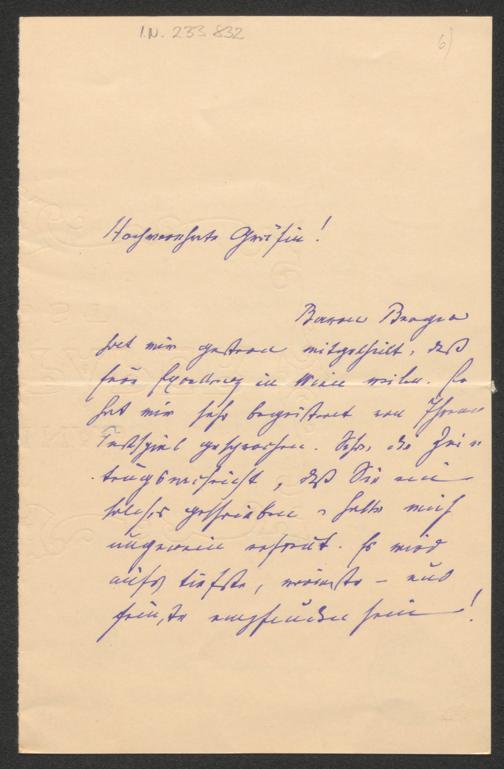 I.N. 233.832
6)
Hochverehrte Gräfin!
Baron Berger
hat mir gestern mitgetheilt, daß
Eure Excellenz in Wien weilen. Er
hat mir sehr begeistert von Ihrem
Festspiel gesprochen. Schon die Zei-
tungsnachricht, daß Sie ein
solches geschrieben – hatte mich
ungemein erfreut. Es wird
aufs tiefste, wärmste – und
feinste empfunden sein!